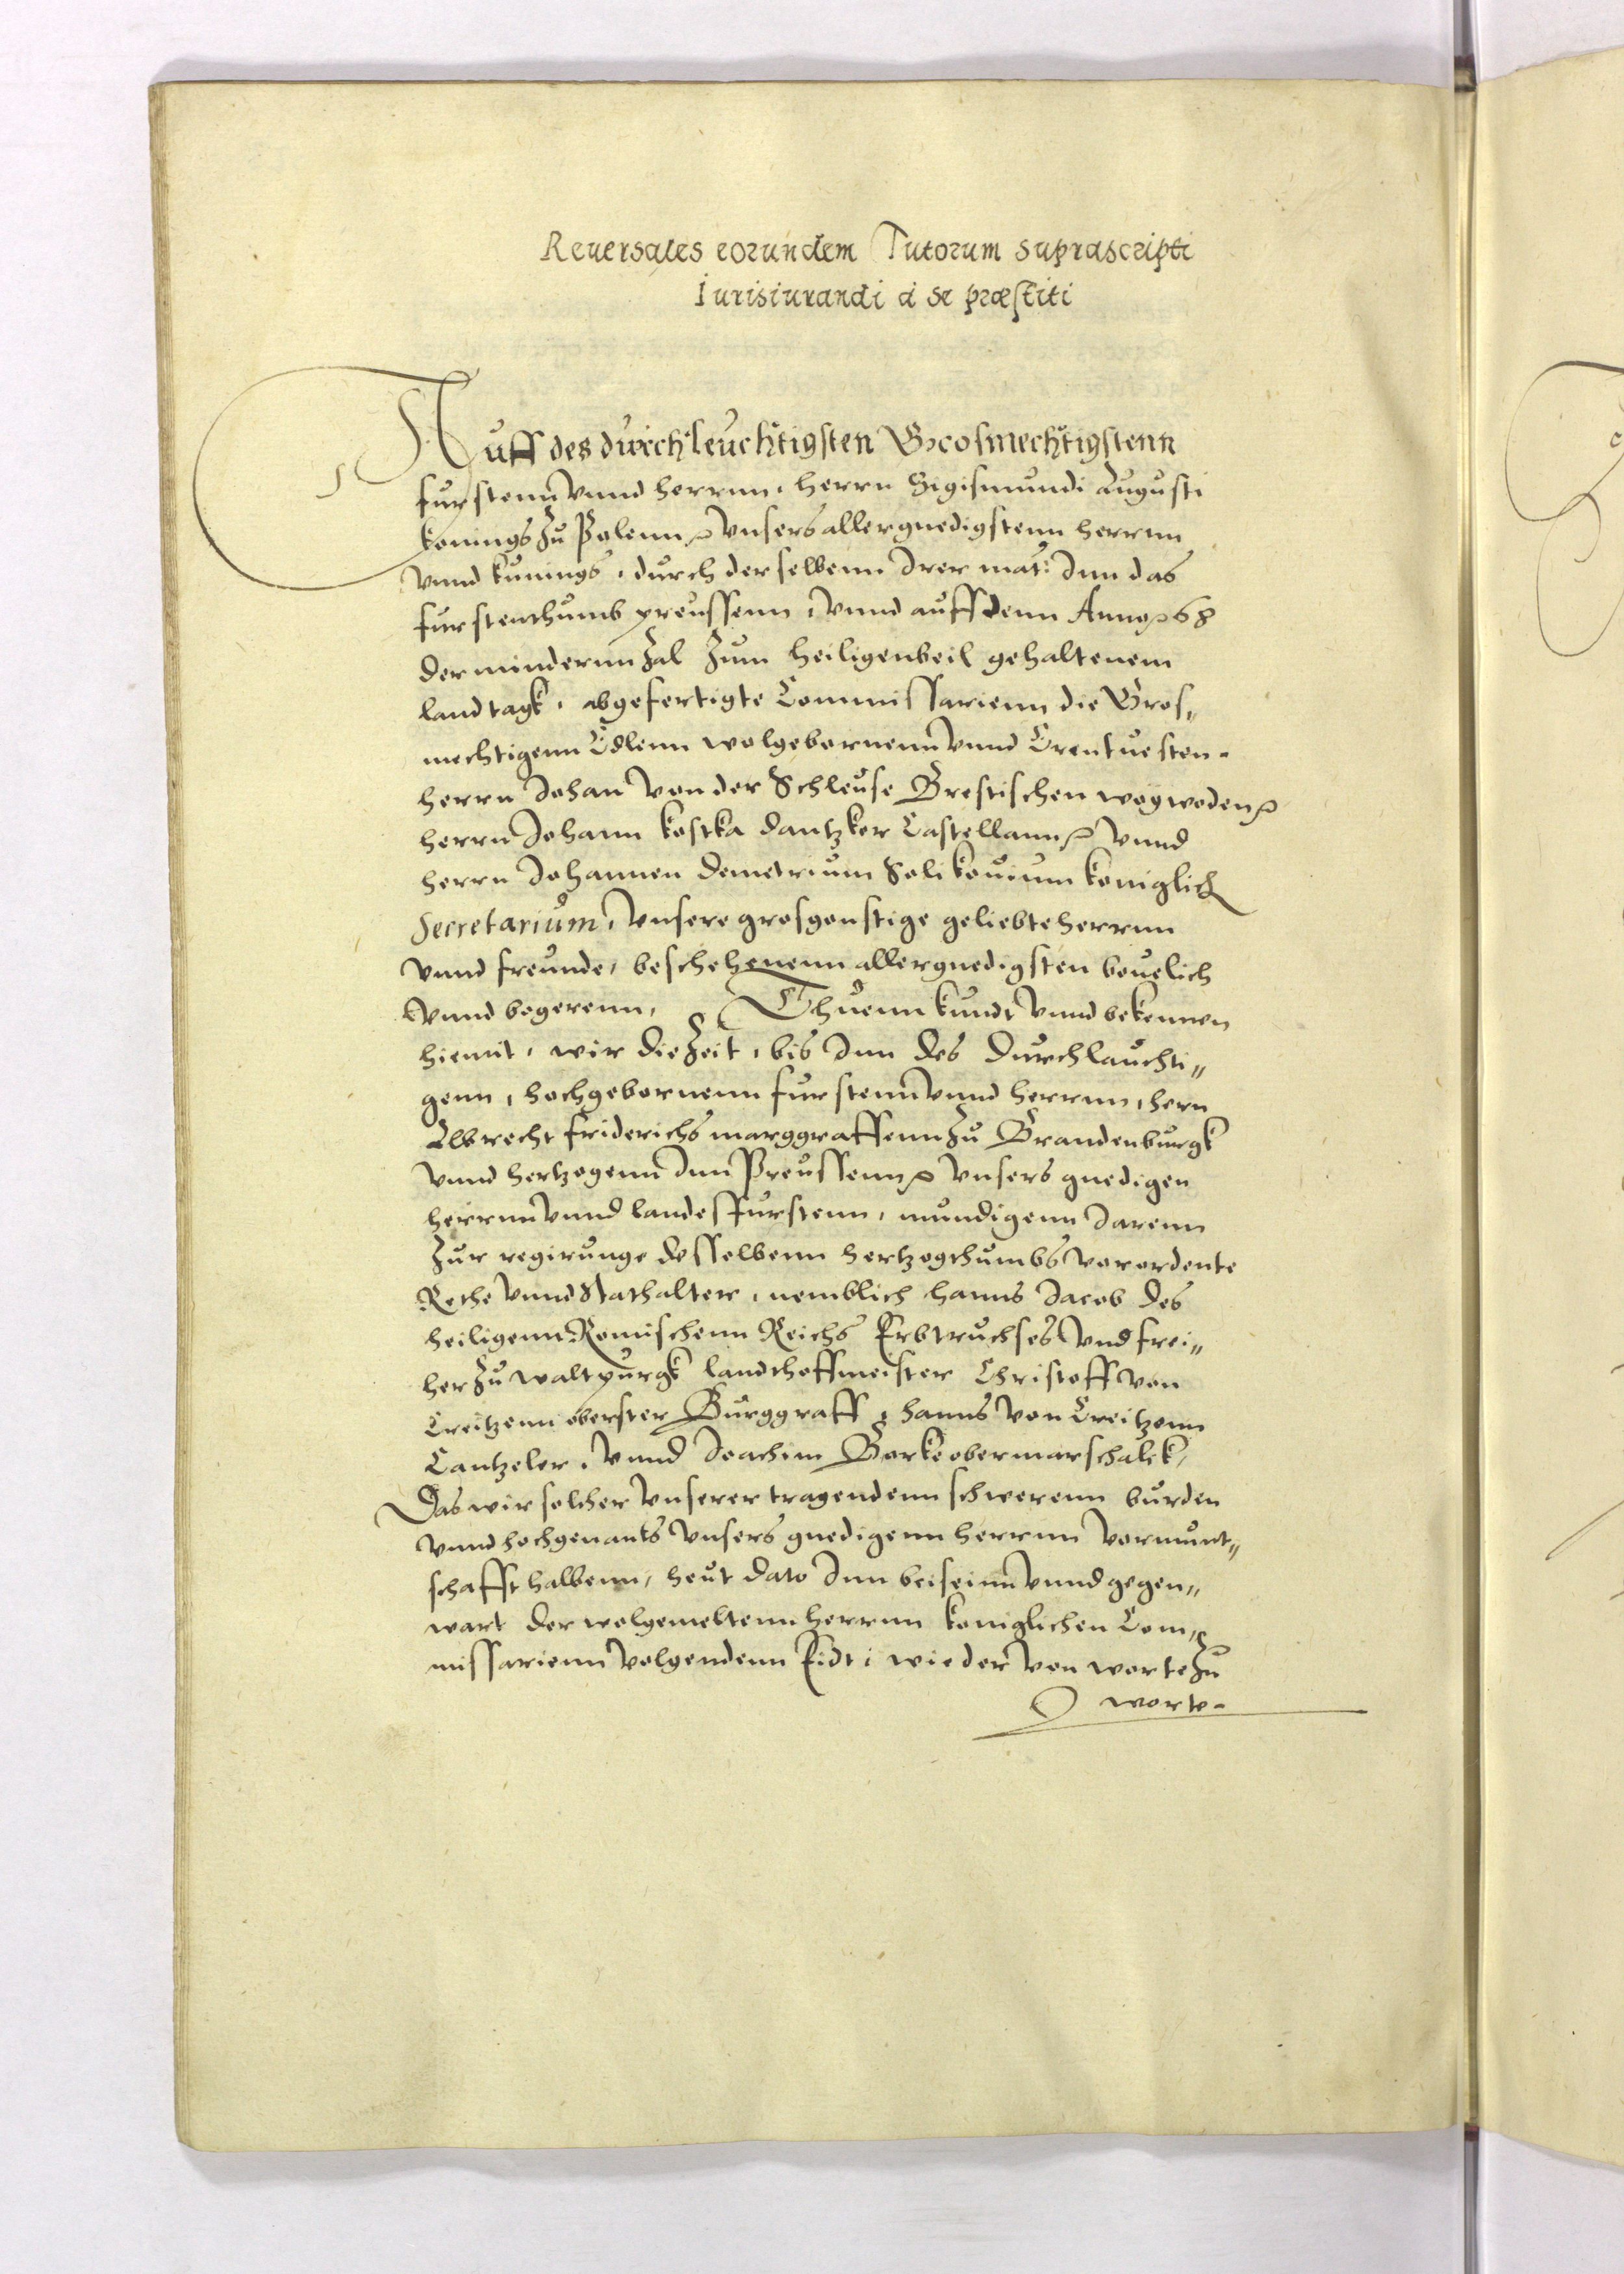 Reuersales eorundem Tutorum suprascripti
Iurisiurandi a se præstiti
Auff des durchleuchtigsten Grosmechtigstenn
furstenn vnnd herrnn, herrn Sigismundi Augusti
konings zu Polenn ꝛc vnsers allergnedigstenn herrnn
vnnd kunings, durch derselbenn Irer mat: Inn das
furstenthumb preussenn, vnnd auff denn Anno ꝛc 68
der mindernn zal zum heiligenbeil gehaltenem
landtagk, abgefertigte Commissarienn die Gros„
mechtigenn Edlenn wolgebornenn vnnd Erentuesten.
herrn Johan von der Schleuse Brestischen woywoden ꝛc
herrn Johann kostka dantzker Castellann ꝛc vnnd
herrn Johannen demetrium Solikouium koniglich
Secretarium, vnsere grosgonstige geliebte herrnn
vnnd freunde, beschehenenn allergnedigsten beuelich
vnnd begerenn, Thuenn kundt vnnd bekennen
hiemit, wir die zeit, bis Inn des durchlauchti„
genn, hochgebornenn furstenn vnnd herrnn, hern
Albrecht friderichs marggraffenn zu Brandenburgk
vnnd hertzogenn Inn Preussenn ꝛc vnsers gnedigen
herrnn vnnd landesfurstenn, mundigenn Jarenn
zur regirunge desselbenn hertzogthumbs verordente
Rethe vnnd Stathalter, nemblich hanns Jacob des
heiligenn Romischenn Reichs Erbtruchses vnd frei„
her zu waltpurgk landthoffmeister Christoff von
Creitzenn oberster Burggraff, hanns von Creitzenn
Cantzeler, vnnd Joachim Borke obermarschalck,
Das wir solcher vnserer tragendenn schwerenn burden
vnnd hochgenants vnsers gnedigenn herrnn vormunt„
schafft halbenn, heut dato Inn beiseinn vnnd gegen„
wart der wolgemeltenn herrnn koniglichen Com„
missarienn volgendenn Eidt, wie der von worte zu
worte.